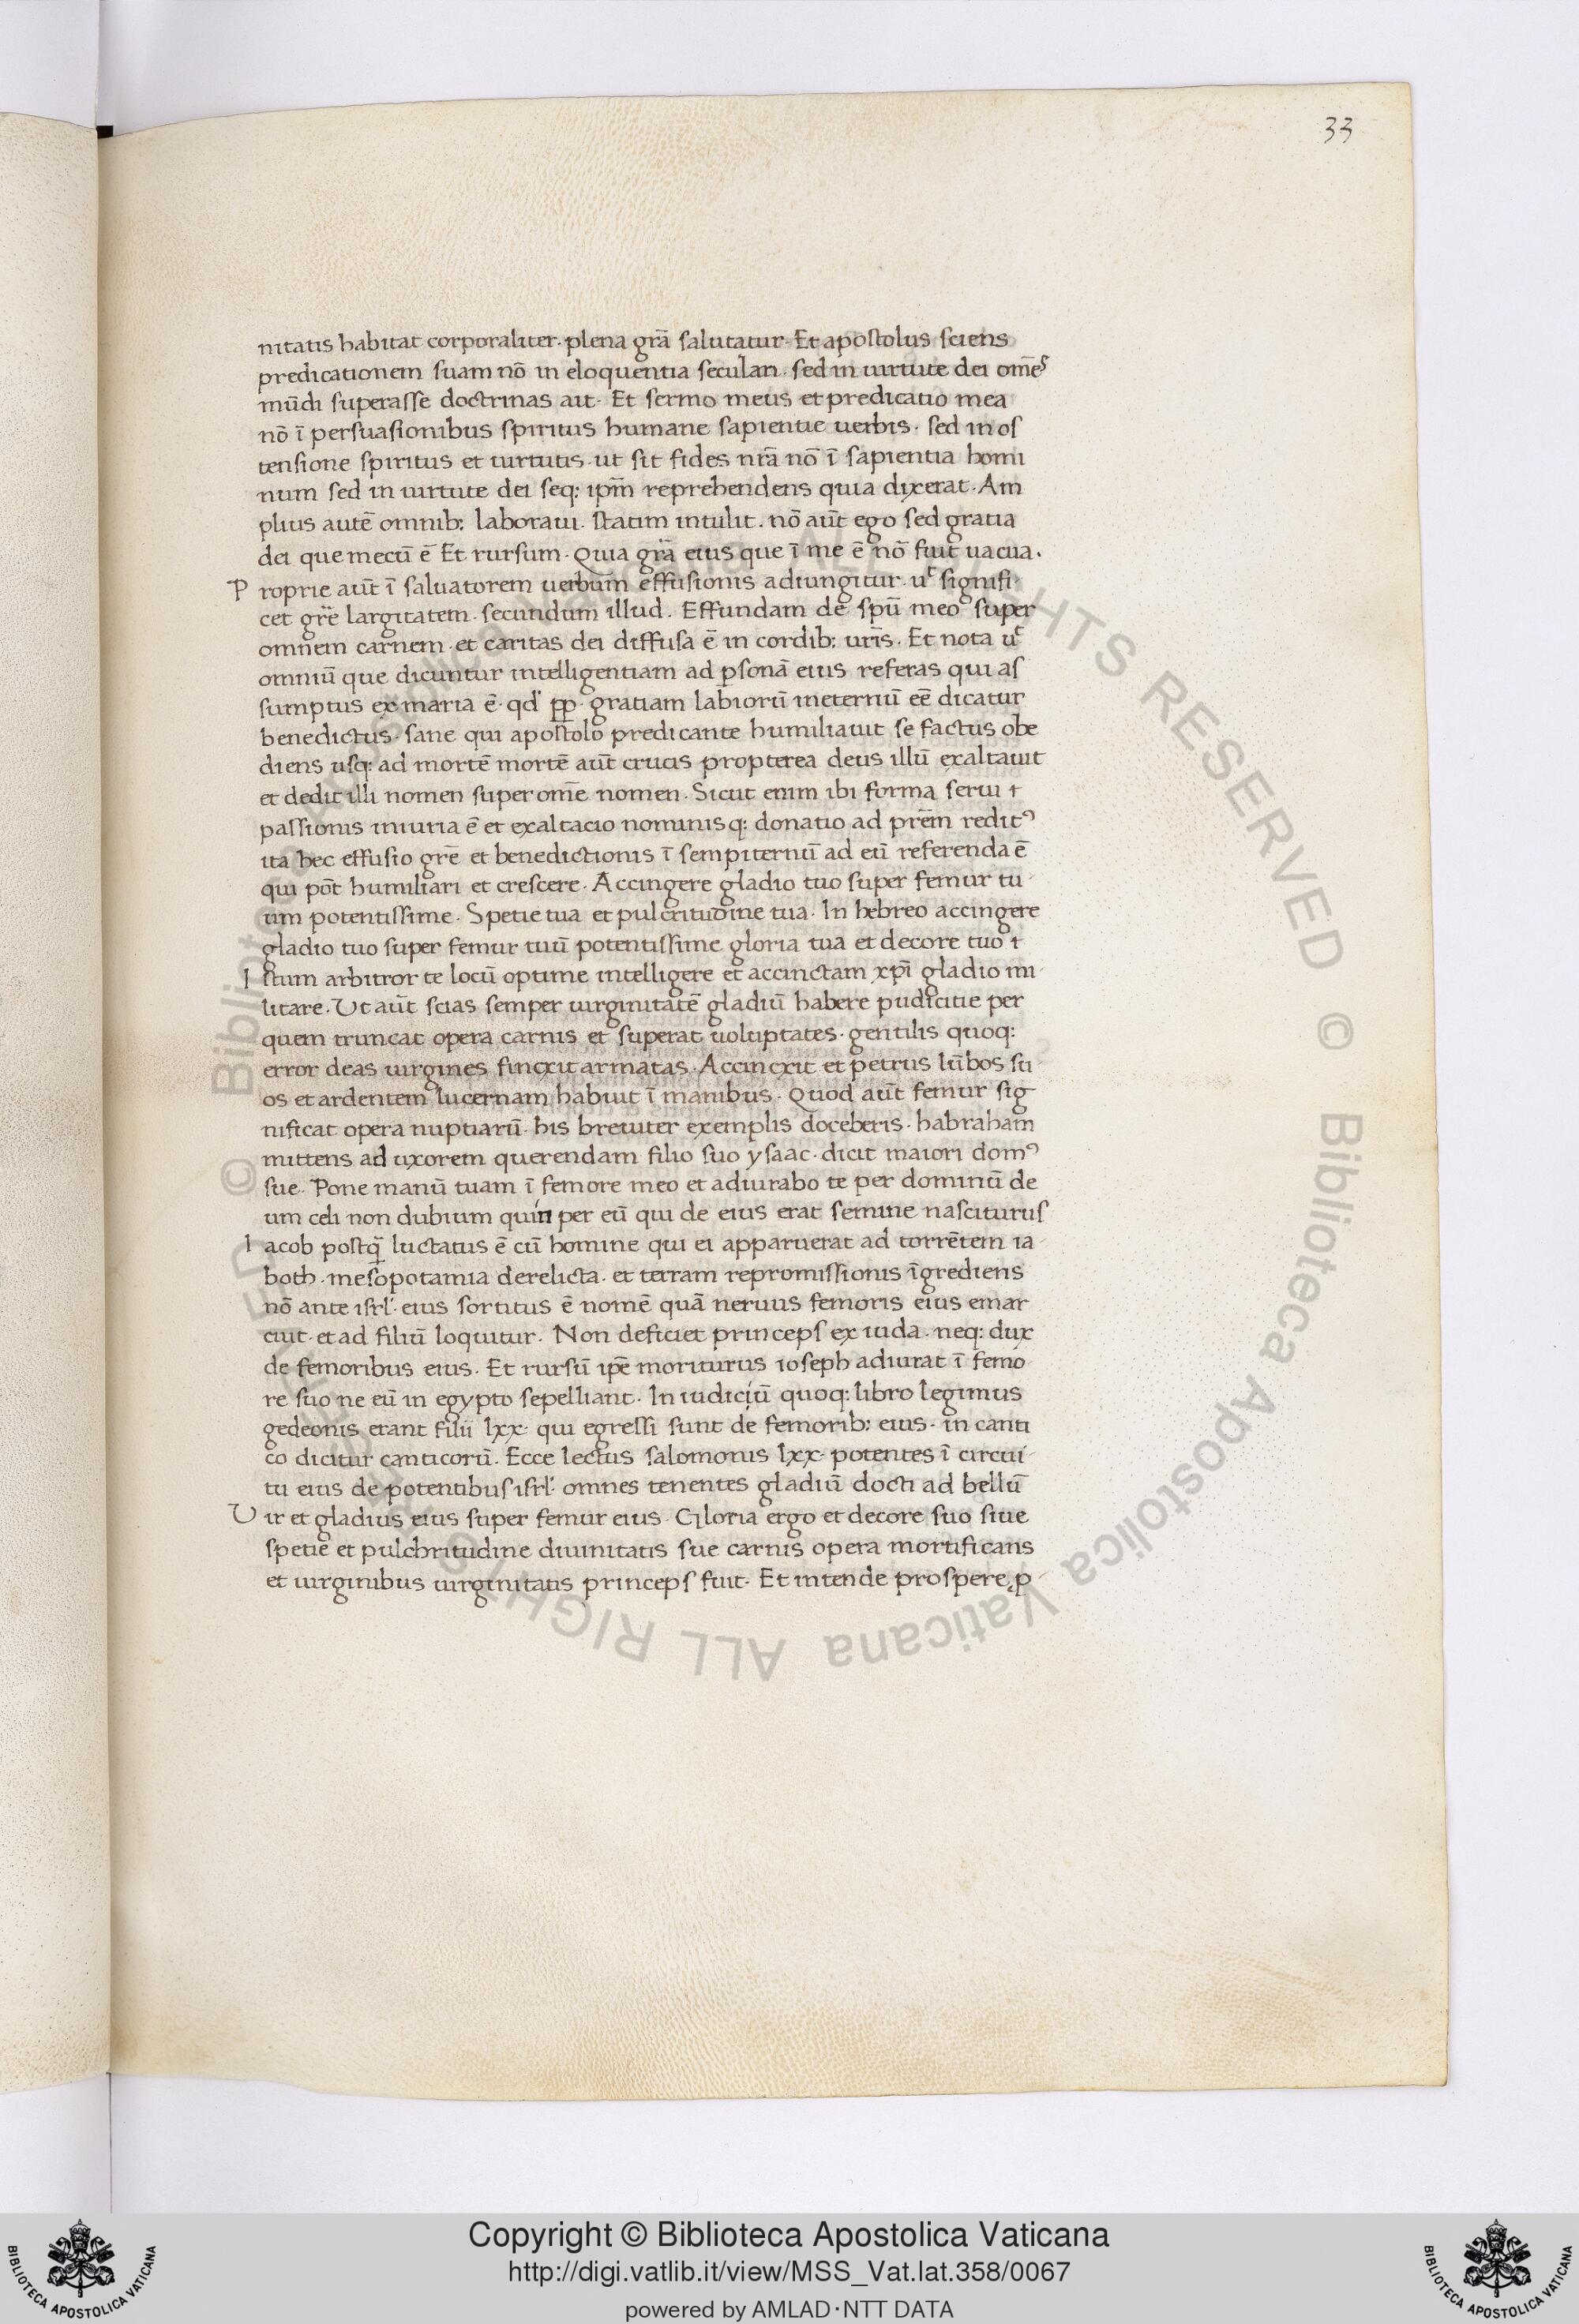 33
nitatis habitat corporaliter. plena grā salutatur. Et apostolus sciens
predicationem suam nō in eloquentia seculari. sed in uirtute dei om̄es
mūdi superasse doctrinas ait. Et sermo meus et predicatio mea
nō ī persuasionibus spiritus humane sapientie uerbis. sed in os
tensione spiritus et uirtutis. ut sit fides nr̄a nō ī sapientia homi
num sed in uirtute dei seq: ip̄m reprehendens quia dixerat. Am
plius autē omnib: laboraui. statim intulit. nō aūt ego sed gratia
dei que mecū ē Et rursum. Quia grā eius que ī me ē nō fuit uacua.
P roprie aūt ī saluatorem uerbum effusionis adiungitur. ut signifi
cet gr̄e largitatem. secundum illud. Effundam de spū meo super
omnem carnem. et caritas dei diffusa ē in cordib: ur̄is. Et nota ut
omniū que dicuntur intelligentiam ad p̱sonā eius referas qui as
sumptus ex maria ē. qd' pp̱. gratiam labiorū ineternū eē dicatur
benedictus. sane qui apostolo predicante humiliauit se factus obe
diens usq: ad mortē mortē aūt crucis propterea deus illū exaltauit
et dedit illi nomen super om̄e nomen. Sicut enim ibi forma serui ⁊
passionis iniuria ē et exaltacio nominisq: donatio ad prēm reditꝰ
ita hec effusio gr̄e et benedictionis ī sempiternū ad eū referenda ē
qui pōt humiliari et crescere. Accingere gladio tuo super femur tu
um potentissime. Spetie tua et pulcritudine tua. In hebreo accingere
gladio tuo super femur tuū potentissime gloria tua et decore tuo ⁊
I stum arbitror te locū optime intelligere et accinctam xp̄i gladio mi
litare. Ut aūt scias semper uirginitatē gladiū habere pudicitie per
quem truncat opera carnis et superat uoluptates. gentilis quoq:
error deas uirgines fincxit armatas. Accincxit et petrus lūbos su
os et ardentem lucernam habuit ī manibus. Quod aūt femur sig
nificat opera nuptiarū. his breuiter exemplis doceberis. habraham
mittens ad uxorem querendam filio suo ysaac. dicit maiori domꝰ
sue. Pone manū tuam ī femore meo et adiurabo te per dominū de
um celi non dubium quin per eū qui de eius erat semine nasciturus
I acob postq̄ luctatus ē cū homine qui ei apparuerat ad torrētem ia
both. mesopotamia derelicta. et terram repromissionis īgrediens
nō ante isrl'. eius sortitus ē nomē quā neruus femoris eius emar
cuit. et ad filiū loquitur. Non deficiet princeps ex iuda. neq: dux
de femoribus eius. Et rursū ip̄e moriturus ioseph adiurat ī femo
re suo ne eū in egypto sepelliant. In iudiciū quoq: libro legimus
gedeonis erant filii lxx. qui egressi sunt de femorib: eius. in canti
co dicitur canticorū. Ecce lectus salomonis lxx. potentes ī circui
tu eius de potentibus isrl'. omnes tenentes gladiū docti ad bellū
U ir et gladius eius super femur eius. Gloria ergo et decore suo siue
spetie et pulchritudine diuinitatis sue carnis opera mortificans
et uirginibus uirginitatis princeps fuit. Et intende prospere, p̱
© Biblioteca Apostolica Vaticana ALL RIGHTS RESERVED © Biblioteca Apostolica Vaticana ALL RIGHTS RESERVED
Copyright © Biblioteca Apostolica Vaticana
http://digi.vatlib.it/view/MSS_Vat.lat.358/0067
powered by AMLAD·NTT DATA
BIBLIOTECA APOSTOLICA VATICANA
BIBLIOTECA APOSTOLICA VATICANA